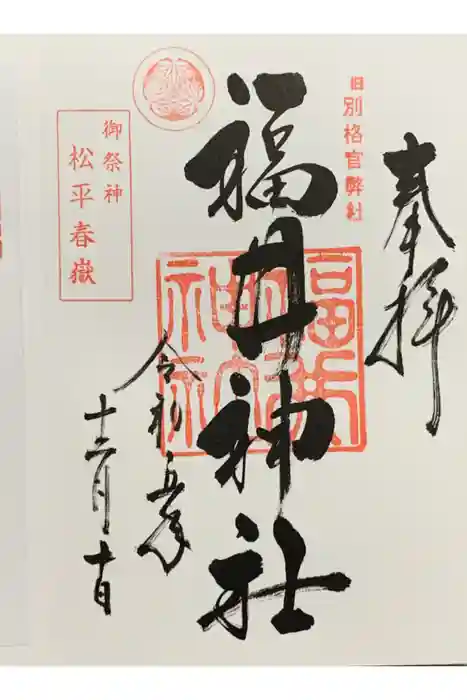 奉拝
旧別格官弊社
福井神社
御祭神
松平春嶽
令和五年
十二月十日